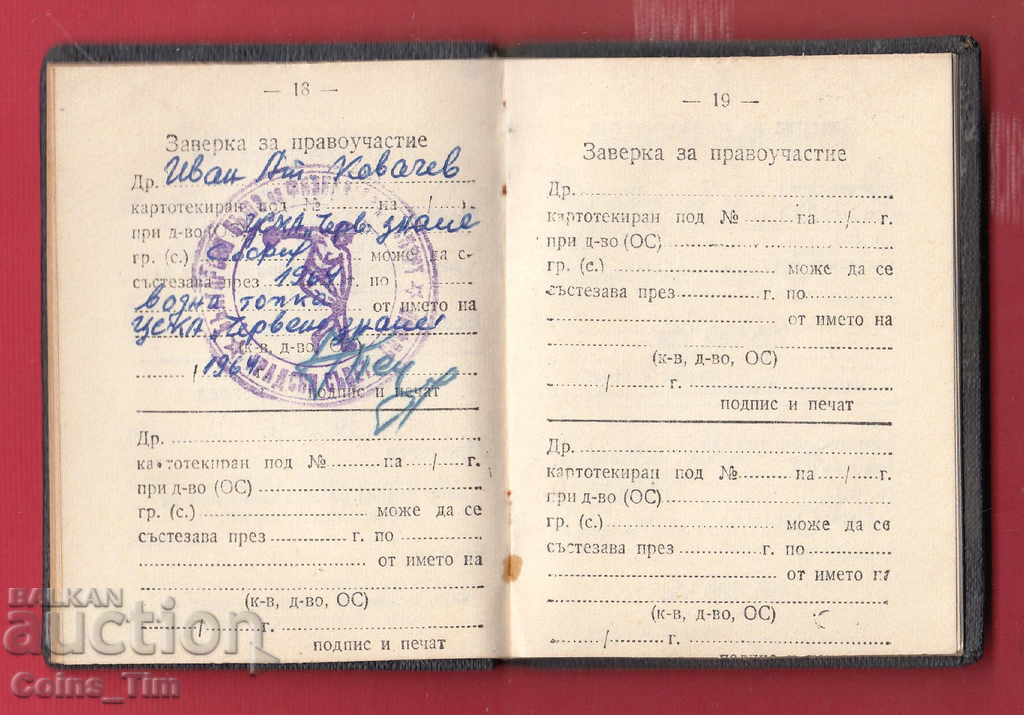 — 18 —
Заверка за правоучастие
Др. Иван Ат Ковачев
картотекиран под № на / г.
при д-во (ОС) ЦСКА "Черв. знаме
гр. (с.) София може да се
състезава през 1964 г. по
водна топка от името на
ЦСКА "Червено знаме"
(к-в, д-во, ОС)
/ 1964 г.
подпис и печат
Др.
картотекиран под № на / г.
при д-во (ОС)
гр. (с.) може да се
състезава през г. по
от името на
(к-в, д-во, ОС)
/ г.
подпис и печат
— 19 —
Заверка за правоучастие
Др.
картотекиран под № на / г.
при д-во (ОС)
гр. (с.) може да се
състезава през г. по
от името на
(к-в, д-во, ОС)
/ г.
подпис и печат
Др.
картотекиран под № на / г.
при д-во (ОС)
гр. (с.) може да се
състезава през г. по
от името на
(к-в, д-во, ОС)
/ г.
подпис и печат
BALKAN
auction
Coins_Tim